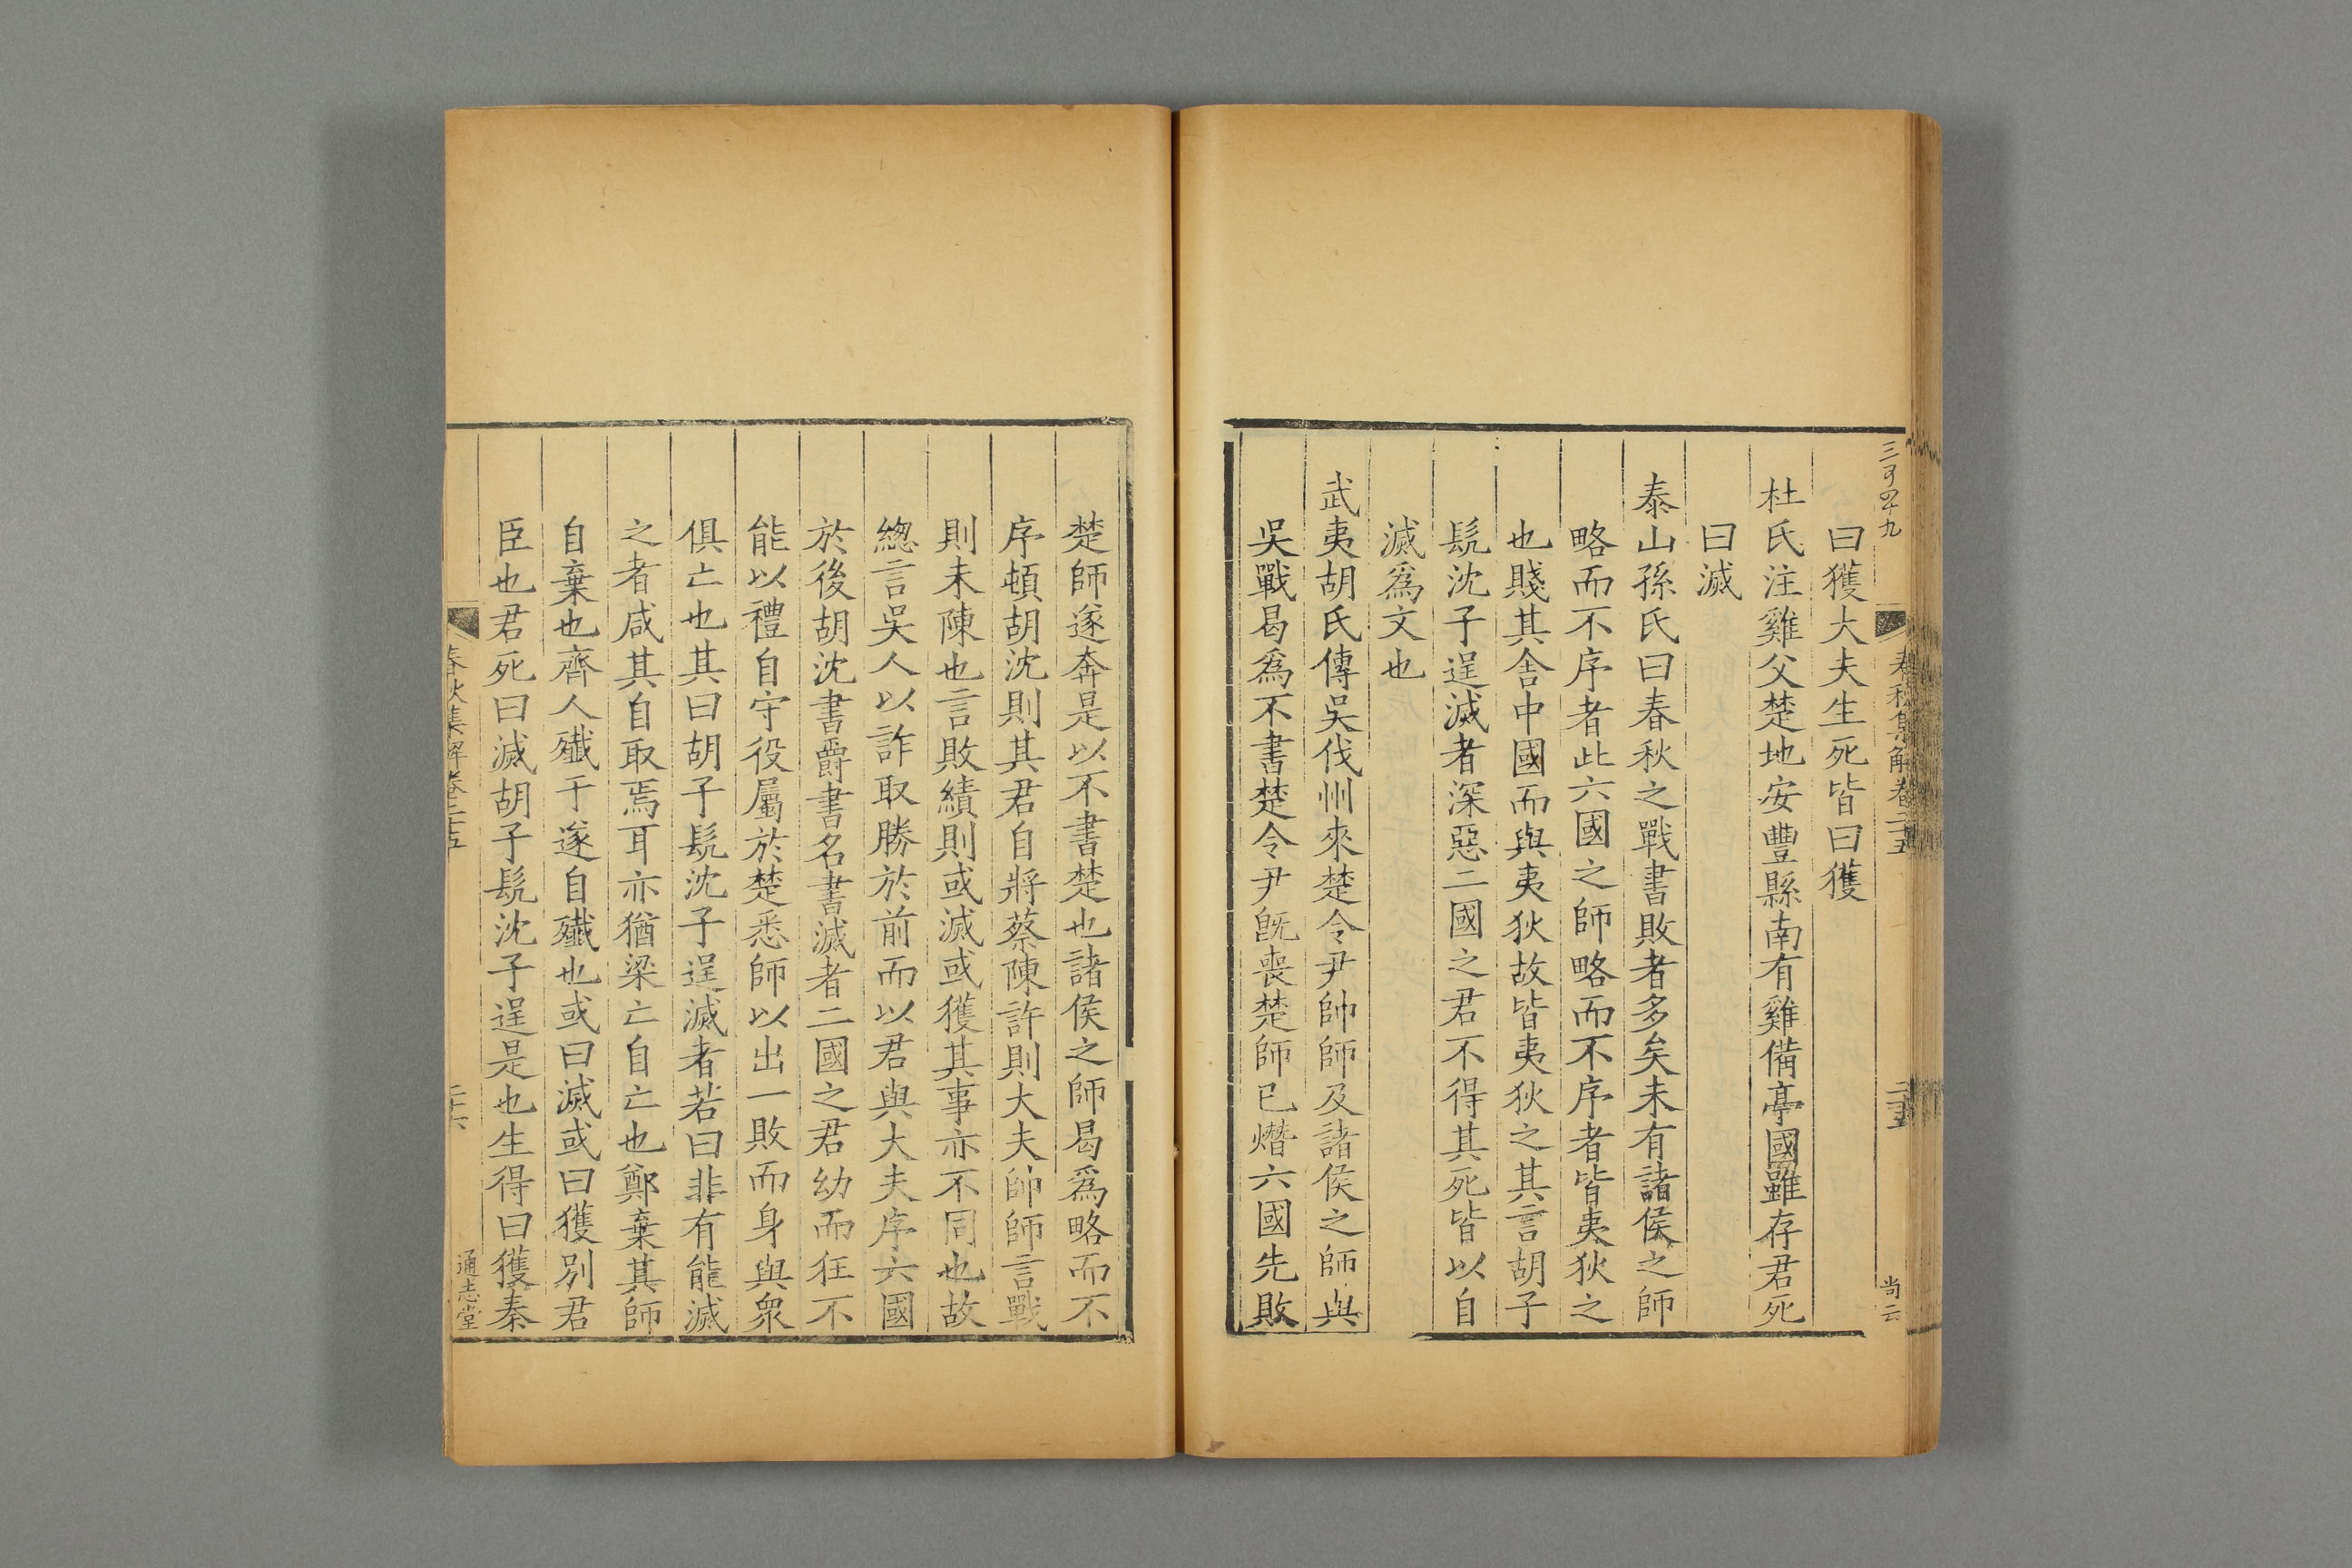 三百四十九
春秋集解卷二十五
二十五
尚云
曰獲大夫生死皆曰獲
杜氏注雞父楚地安豐縣南有雞備亭國雖存君死
曰滅
泰山孫氏曰春秋之戰書敗者多矣未有諸侯之師
略而不序者此六國之師略而不序者皆夷狄之
也賤其舍中國而與夷狄故皆夷狄之其言胡子
髠沈子逞滅者深惡二國之君不得其死皆以自
滅爲文也
武夷胡氏傳吳伐州來楚令尹帥師及諸侯之師與
吳戰曷爲不書楚令尹旣喪楚師已熸六國先敗
楚師遂奔是以不書楚也諸侯之師曷爲略而不
序頓胡沈則其君自將蔡陳許則大夫帥師言戰
則未陳也言敗績則或滅或獲其事亦不同也故
緫言吳人以詐取勝於前而以君與大夫序六國
於後胡沈書爵書名書滅者二國之君幼而狂不
能以禮自守役屬於楚悉師以出一敗而身與衆
俱亡也其曰胡子髠沈子逞滅者若曰非有能滅
之者咸其自取焉耳亦猶梁亡自亡也鄭棄其師
自棄也齊人殱于遂自殱也或曰滅或曰獲別君
臣也君死曰滅胡子髠沈子逞是也生得曰獲秦
春秋集解卷二十五
二十六
通志堂